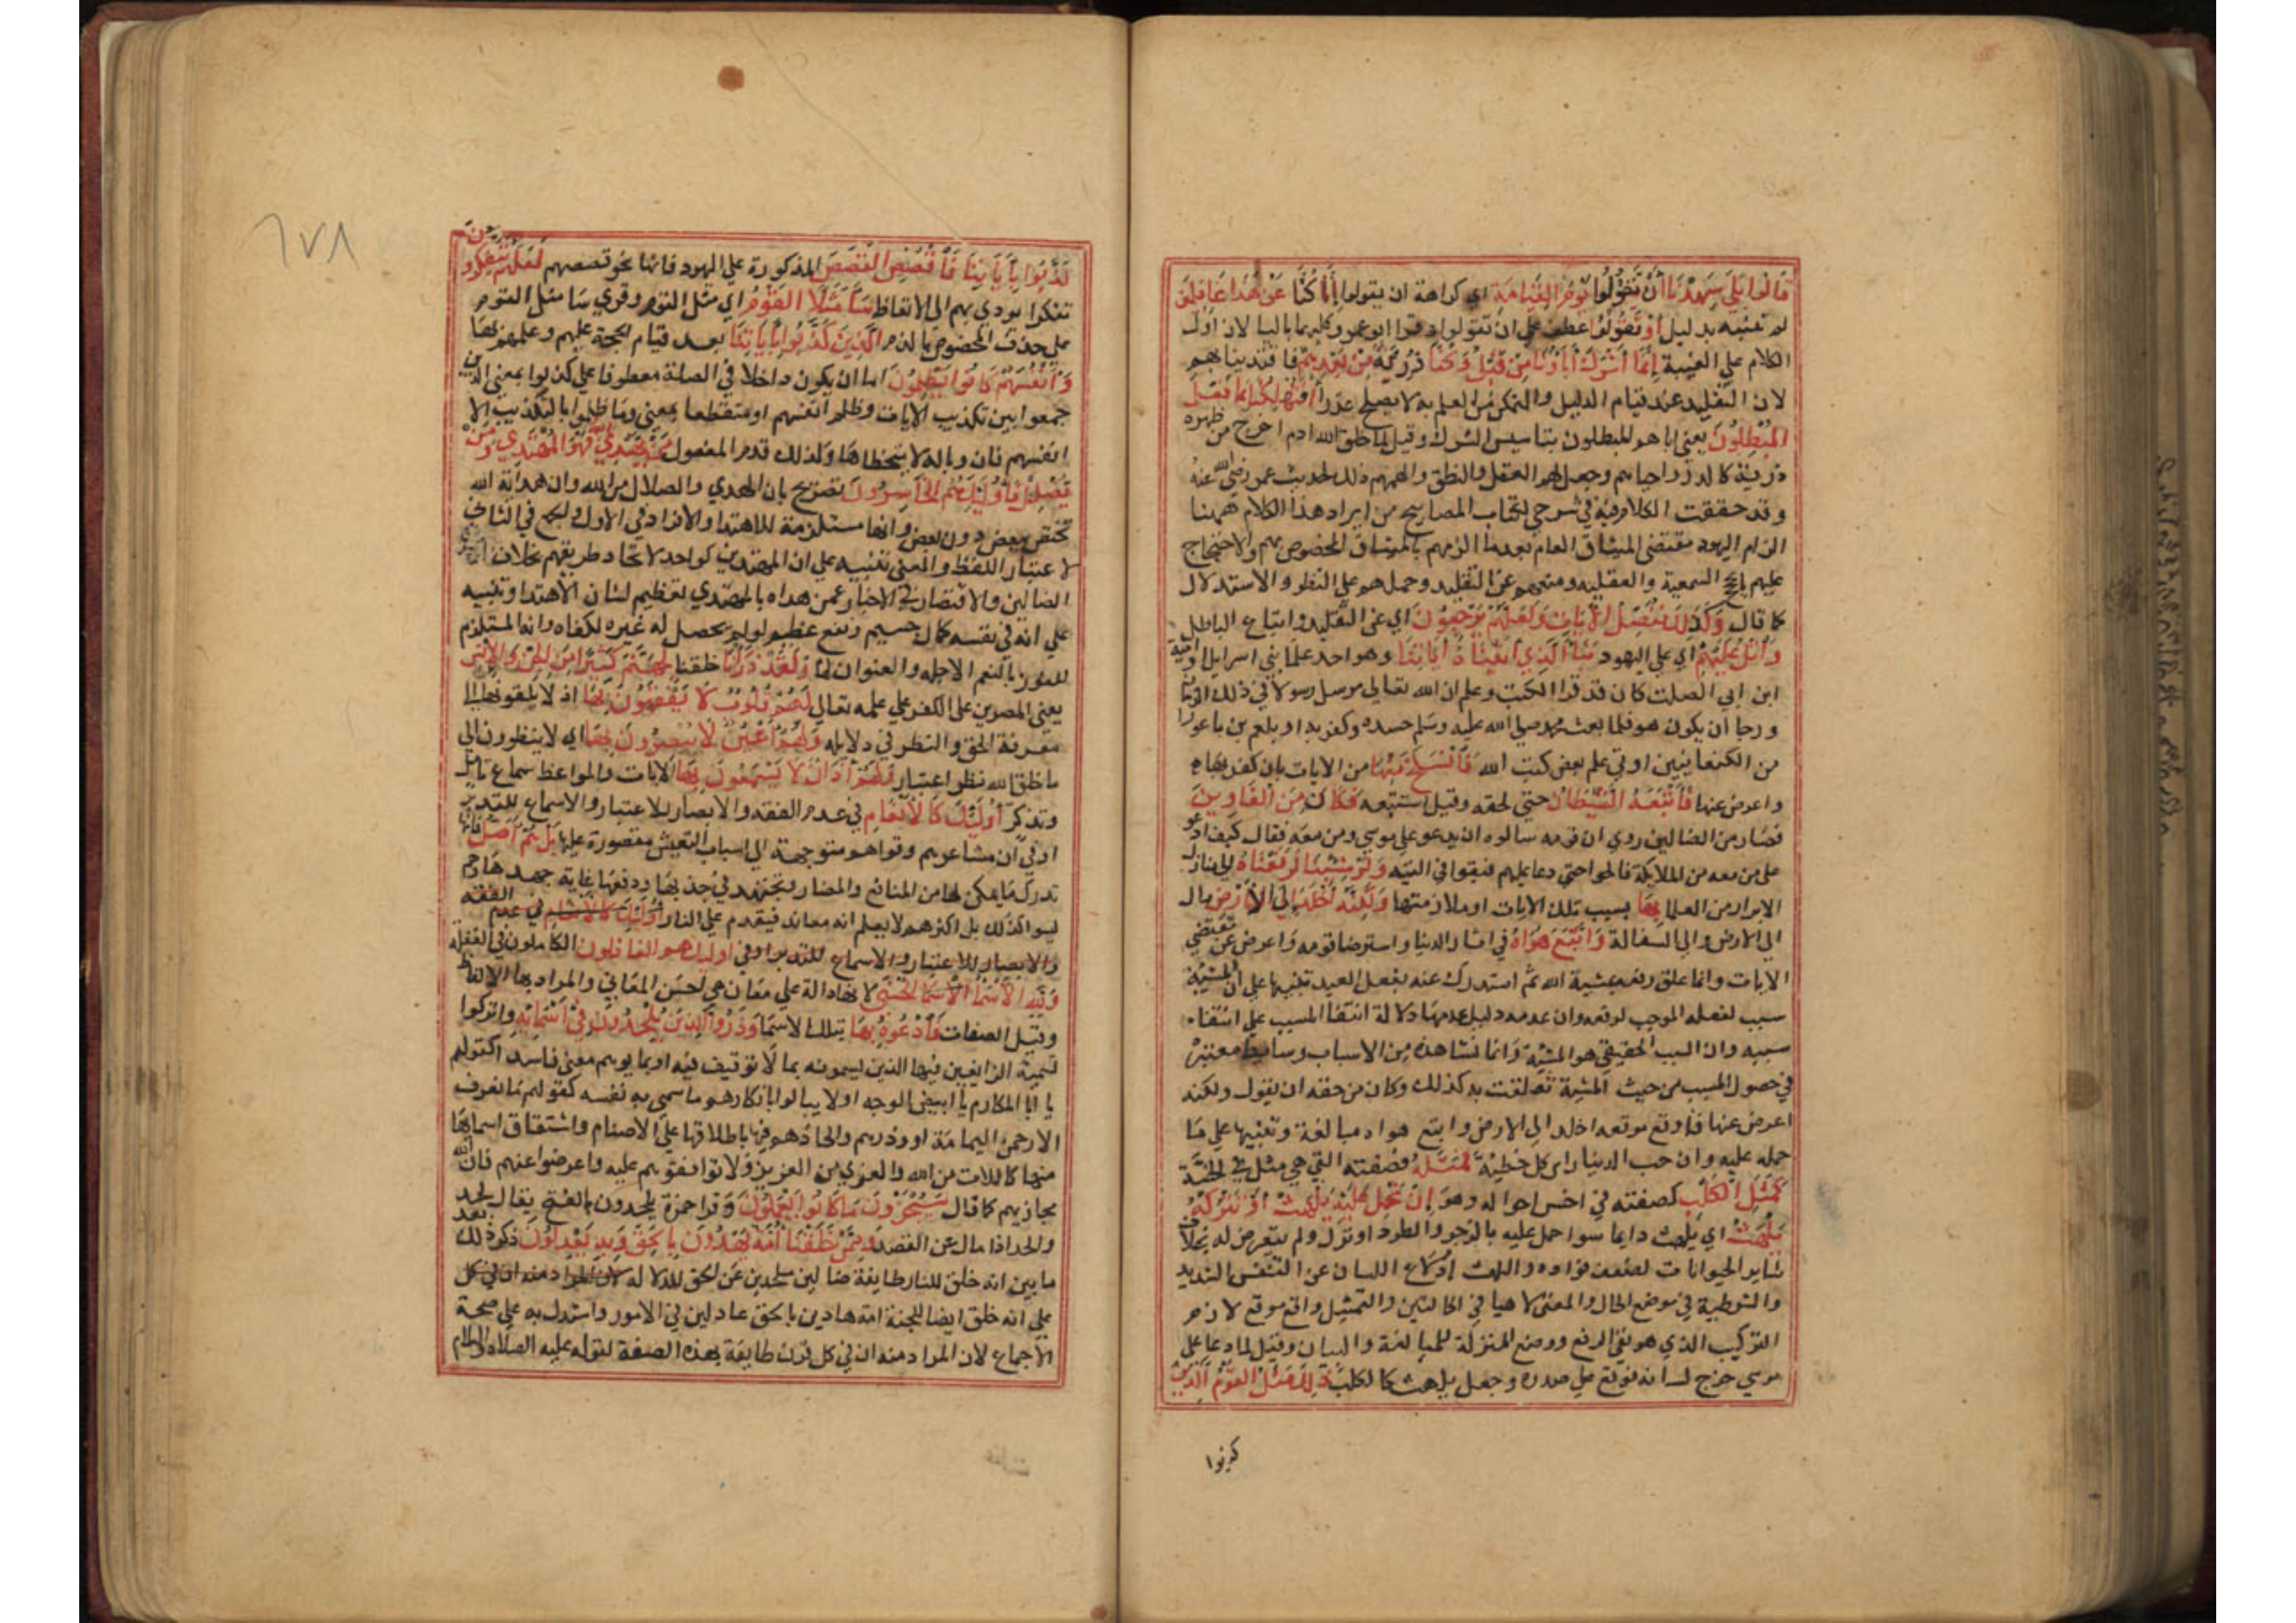 قالوا بلي شهدنا ان تقولوا يوم القيامة اي كراهة ان يقولوا انا كنا عن هذا غافلين
لم تنبه بدليل او تقولوا عطف علي ان تقولوا وقرا ابو عمرو كليهما باليا لان اول
الكلام علي الغيبة انما اشرك اباؤنا من قبل وكنا ذرية من بعدهم فاقتدينا بهم
لان التقليد عند قيام الدليل والتمكن من العلم به لا يصلح عذرا افتهلكنا بما فعل
المبطلون يعني اباهم المبطلون بتاسيس الشرك وقيل لما خلق الله ادم اخرج من ظهره
ذرية كالذر واحياهم وجعل لهم العقل والنطق والهمهم ذلك لحديث عمر رضي الله عنه
وقد حققت الكلام فيه في شرحي لكتاب المصابيح من ايراد هذا الكلام ههنا
الزام اليهود مقتضي الميثاق العام بعدما الزمهم بالميثاق المخصوص بهم والاحتجاج
عليهم بالحجج السمعية والعقلية ومنعهم عن التقليد وحملهم علي النظر والاستدلال
كما قال وكذلك نفصل الايات ولعلهم يرجعون اي عن التقليد واتباع الباطل
واتل عليهم اي علي اليهود نبا الذي اتيناه اياتنا وهو احد علما بني اسرايل او امية
ابن ابي الصلت كان قد قرا الكتب وعلم ان الله تعالي مرسل رسولا في ذلك الزمان
ورجا ان يكون هو فلما بعث محمد صلي الله عليه وسلم حسده وكفر به او بلعم بن باعورا
من الكنعانيين اوتي علم بعض كتب الله فانسلخ منها من الايات بان كفر بها
واعرض عنها فاتبعه الشيطان حتي لحقه وقيل استتبعه فكان من الغاوين
فصار من الضالين روي ان قومه سالوه ان يدعو علي موسي ومن معه فقال كيف ادعو
علي من معه من الملايكة فالحوا حتي دعا عليهم فبقوا في التيه ولو شئنا لرفعناه الي منازل
الابرار من العلما بها بسبب تلك الايات وملازمتها ولكنه اخلد الي الارض مال
الي الارض والي السفالة واتبع هواه في ايثار الدنيا واسترضا قومه واعرض عن مقتضي
الايات وانما علق رفعه بمشية الله ثم استدرك عنه بفعل العبد تنبيها علي ان المشية
سبب لفعله الموجب لرفعه وان عدمه دليل عدمها دلالة انتفا المسبب علي انتفاء
سببه وان السبب الحقيقي هو المشية وانما نشاهده من الاسباب وسايط معتبرة
في حصول المسبب من حيث المشية تعلقت به كذلك وكان من حقه ان يقول ولكنه
اعرض عنها فاوقع موقعه اخلد الي الارض واتبع هواه مبالغة وتنبيها علي ما
حمله عليه وان حب الدنيا راس كل خطية فمثله فصفته التي هي مثل في الخسة
كمثل الكلب كصفته في اخس احواله وهو ان تحمل عليه يلهث او تتركه
يلهث اي يلهث دايما سوا حمل عليه بالزجر والطرد او ترك ولم يتعرض له بخلاف
ساير الحيوانات لضعف فؤاده واللهث ادلاع اللسان عن التنفس الشديد
والشرطية في موضع الحال والمعني لاهيا في الحالتين والتمثيل واقع موقع لازم
التركيب الذي هو نفي الرفع ووضع المنزلة للمبالغة والبيان وقيل لما دعا علي
موسي خرج لسانه فوقع علي صدره وجعل يلهث كالكلب ذلك مثل القوم الذين
كذبوا
٦٧٨
كذبوا باياتنا فاقصص القصص المذكورة علي اليهود فانها نحو قصصهم لعلهم يتفكرون
تفكرا يودي بهم الي الاتعاظ ساء مثلا القوم اي مثل القوم وقري سا مثل القوم
علي حذف المخصوص بالذم الذين كذبوا باياتنا بعد قيام الحجة عليهم وعلمهم بها
وانفسهم كانوا يظلمون اما ان يكون داخلا في الصلة معطوفا علي كذبوا بمعني الذين
جمعوا بين تكذيب الايات وظلم انفسهم او منقطعا بمعني وما ظلموا بالتكذيب الا
انفسهم فان وباله لا يتخطاها ولذلك قدم المفعول من يهد الله فهو المهتدي ومن
يضلل فاوليك هم الخاسرون تصريح بان الهدي والضلال من الله وان هداية الله
تختص ببعض دون بعض وانها مستلزمة للاهتدا والافراد في الاول والجمع في الثاني
لاعتبار اللفظ والمعني تنبيه علي ان المهتدين كواحد لاتحاد طريقهم بخلاف
الضالين والاقتصار في الاخبار عمن هداه بالمهتدي تعظيم لشان الاهتدا وتنبيه
علي انه في نفسه كمال جسيم ونفع عظيم لو لم يحصل له غيره لكفاه وانه المستلزم
للفوز بالنعم الاجلة والعنوان لها ولقد ذرانا خلقنا لجهنم كثيرا من الجن والانس
يعني المصرين علي الكفر علي علمه تعالي لهم قلوب لا يفقهون بها اذ لا يلقونها الي
معرفة الحق والنظر في دلايله ولهم اعين لا يبصرون بها اي لا ينظرون الي
ما خلق الله نظر اعتبار ولهم اذان لا يسمعون بها الايات والمواعظ سماع تامل
وتذكر اوليك كالانعام في عدم الفقه والابصار للاعتبار والاسماع للتدبر
او في ان مشاعرهم وقواهم متوجهة الي اسباب التعيش مقصورة عليها بل هم اضل فانها
تدرك ما يمكن لها من المنافع والمضار وتجتهد في جذبها ودفعها غاية جهدها وهم
ليسوا كذلك بل اكثرهم لا يعلم انه معاند فيقدم علي النار اوليك كالانعام في عدم الفقه
والابصار للاعتبار والاسماع للتدبر او في اوليك هم الغافلون الكاملون في الغفلة
ولله الاسما الاسما الحسني لانها دالة علي معان هي احسن المعاني والمراد بها الالفاظ
وقيل الصفات فادعوه بها بتلك الاسما وذروا الذين يلحدون في اسمائه واتركوا
تسمية الزايغين فيها الذين يسمونه بما لا توقيف فيه او بما يوهم معني فاسدا كقولهم
يا ابا المكارم يا ابيض الوجه او لا يبالوا بانكارهم ما سمي به نفسه كقولهم ما نعرف
الا رحمن اليمامة او وذرهم والحادهم فيها باطلاقها علي الاصنام واشتقاق اسمايها
منها كاللات من الله والعزي من العزيز ولا توافقوهم عليه واعرضوا عنهم فان الله
مجازيهم كما قال سيجزون ما كانوا يعملون وقرا حمزة يلحدون بالفتح يقال لحد
والحد اذا مال عن القصد وممن خلقنا امة يهدون بالحق وبه يعدلون ذكر ذلك بعد
ما بين انه خلق للنار طايفة ضالين ملحدين عن الحق للدلالة لان المراد منه ان في كل
علي انه خلق ايضا للجنة امة هادين بالحق عادلين في الامور واستدل به علي صحة
الاجماع لان المراد منه ان في كل قرن طايفة بهذه الصفة لقوله عليه الصلاة والسلام